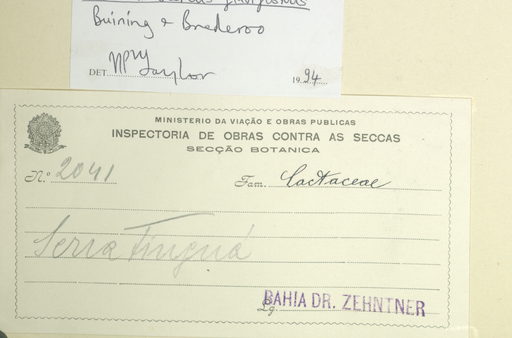 Buining & Brederoo
DET. NP Taylor 1994
MINISTERIO DA VIAÇÃO E OBRAS PUBLICAS
INSPECTORIA DE OBRAS CONTRA AS SECCAS
SECÇÃO BOTANICA
N.º 2041 Fam. Cactaceae
Serra Tinguá
BAHIA DR. ZEHNTNER
Lg.